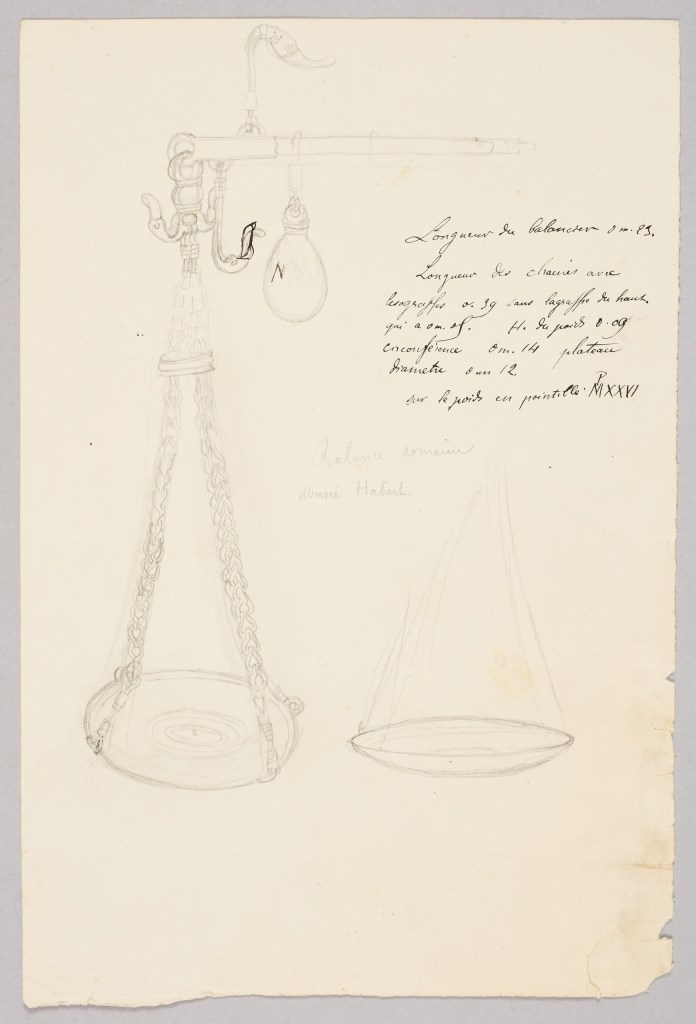 N
Longueur du balancier 0 m. 23.
Longueur des chaines avec
les agraffes 0. 39 sans l'agraffe du haut
qui a 0 m. 05. H. du poids 0.09
circonférence 0 m. 14 plateau
diametre 0 m 12
sur le poids en pointille. MXXVI
Balance romaine
Musée Habert.